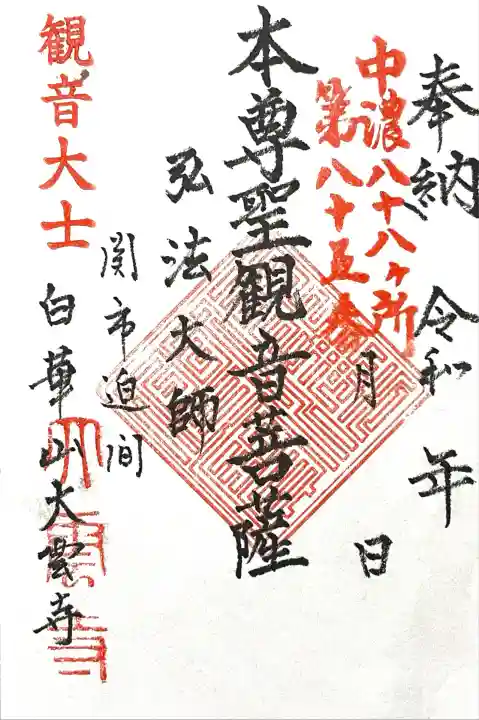 奉納 令和 年 月 日
中濃八十八ヶ所
第八十五番
本尊聖観音菩薩
弘法大師
関市迫间
観音大士
白華山大雲寺
大雲寺